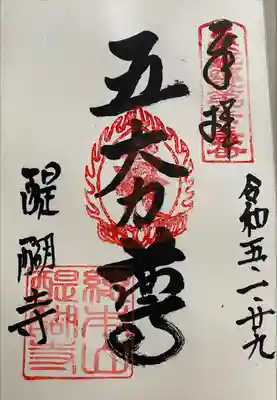 奉拝
令和五・一・廿九
五大力尊
醍醐寺
総本山
醍醐寺